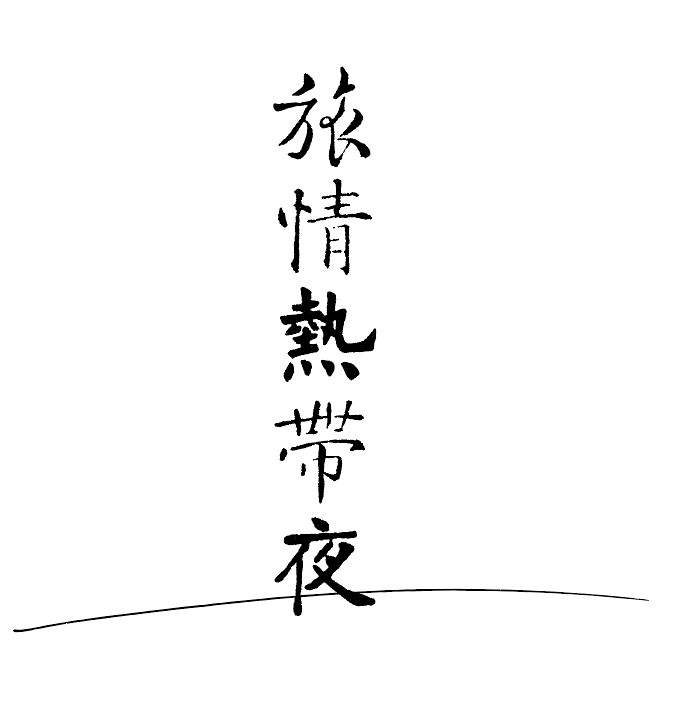 旅情熱帯夜